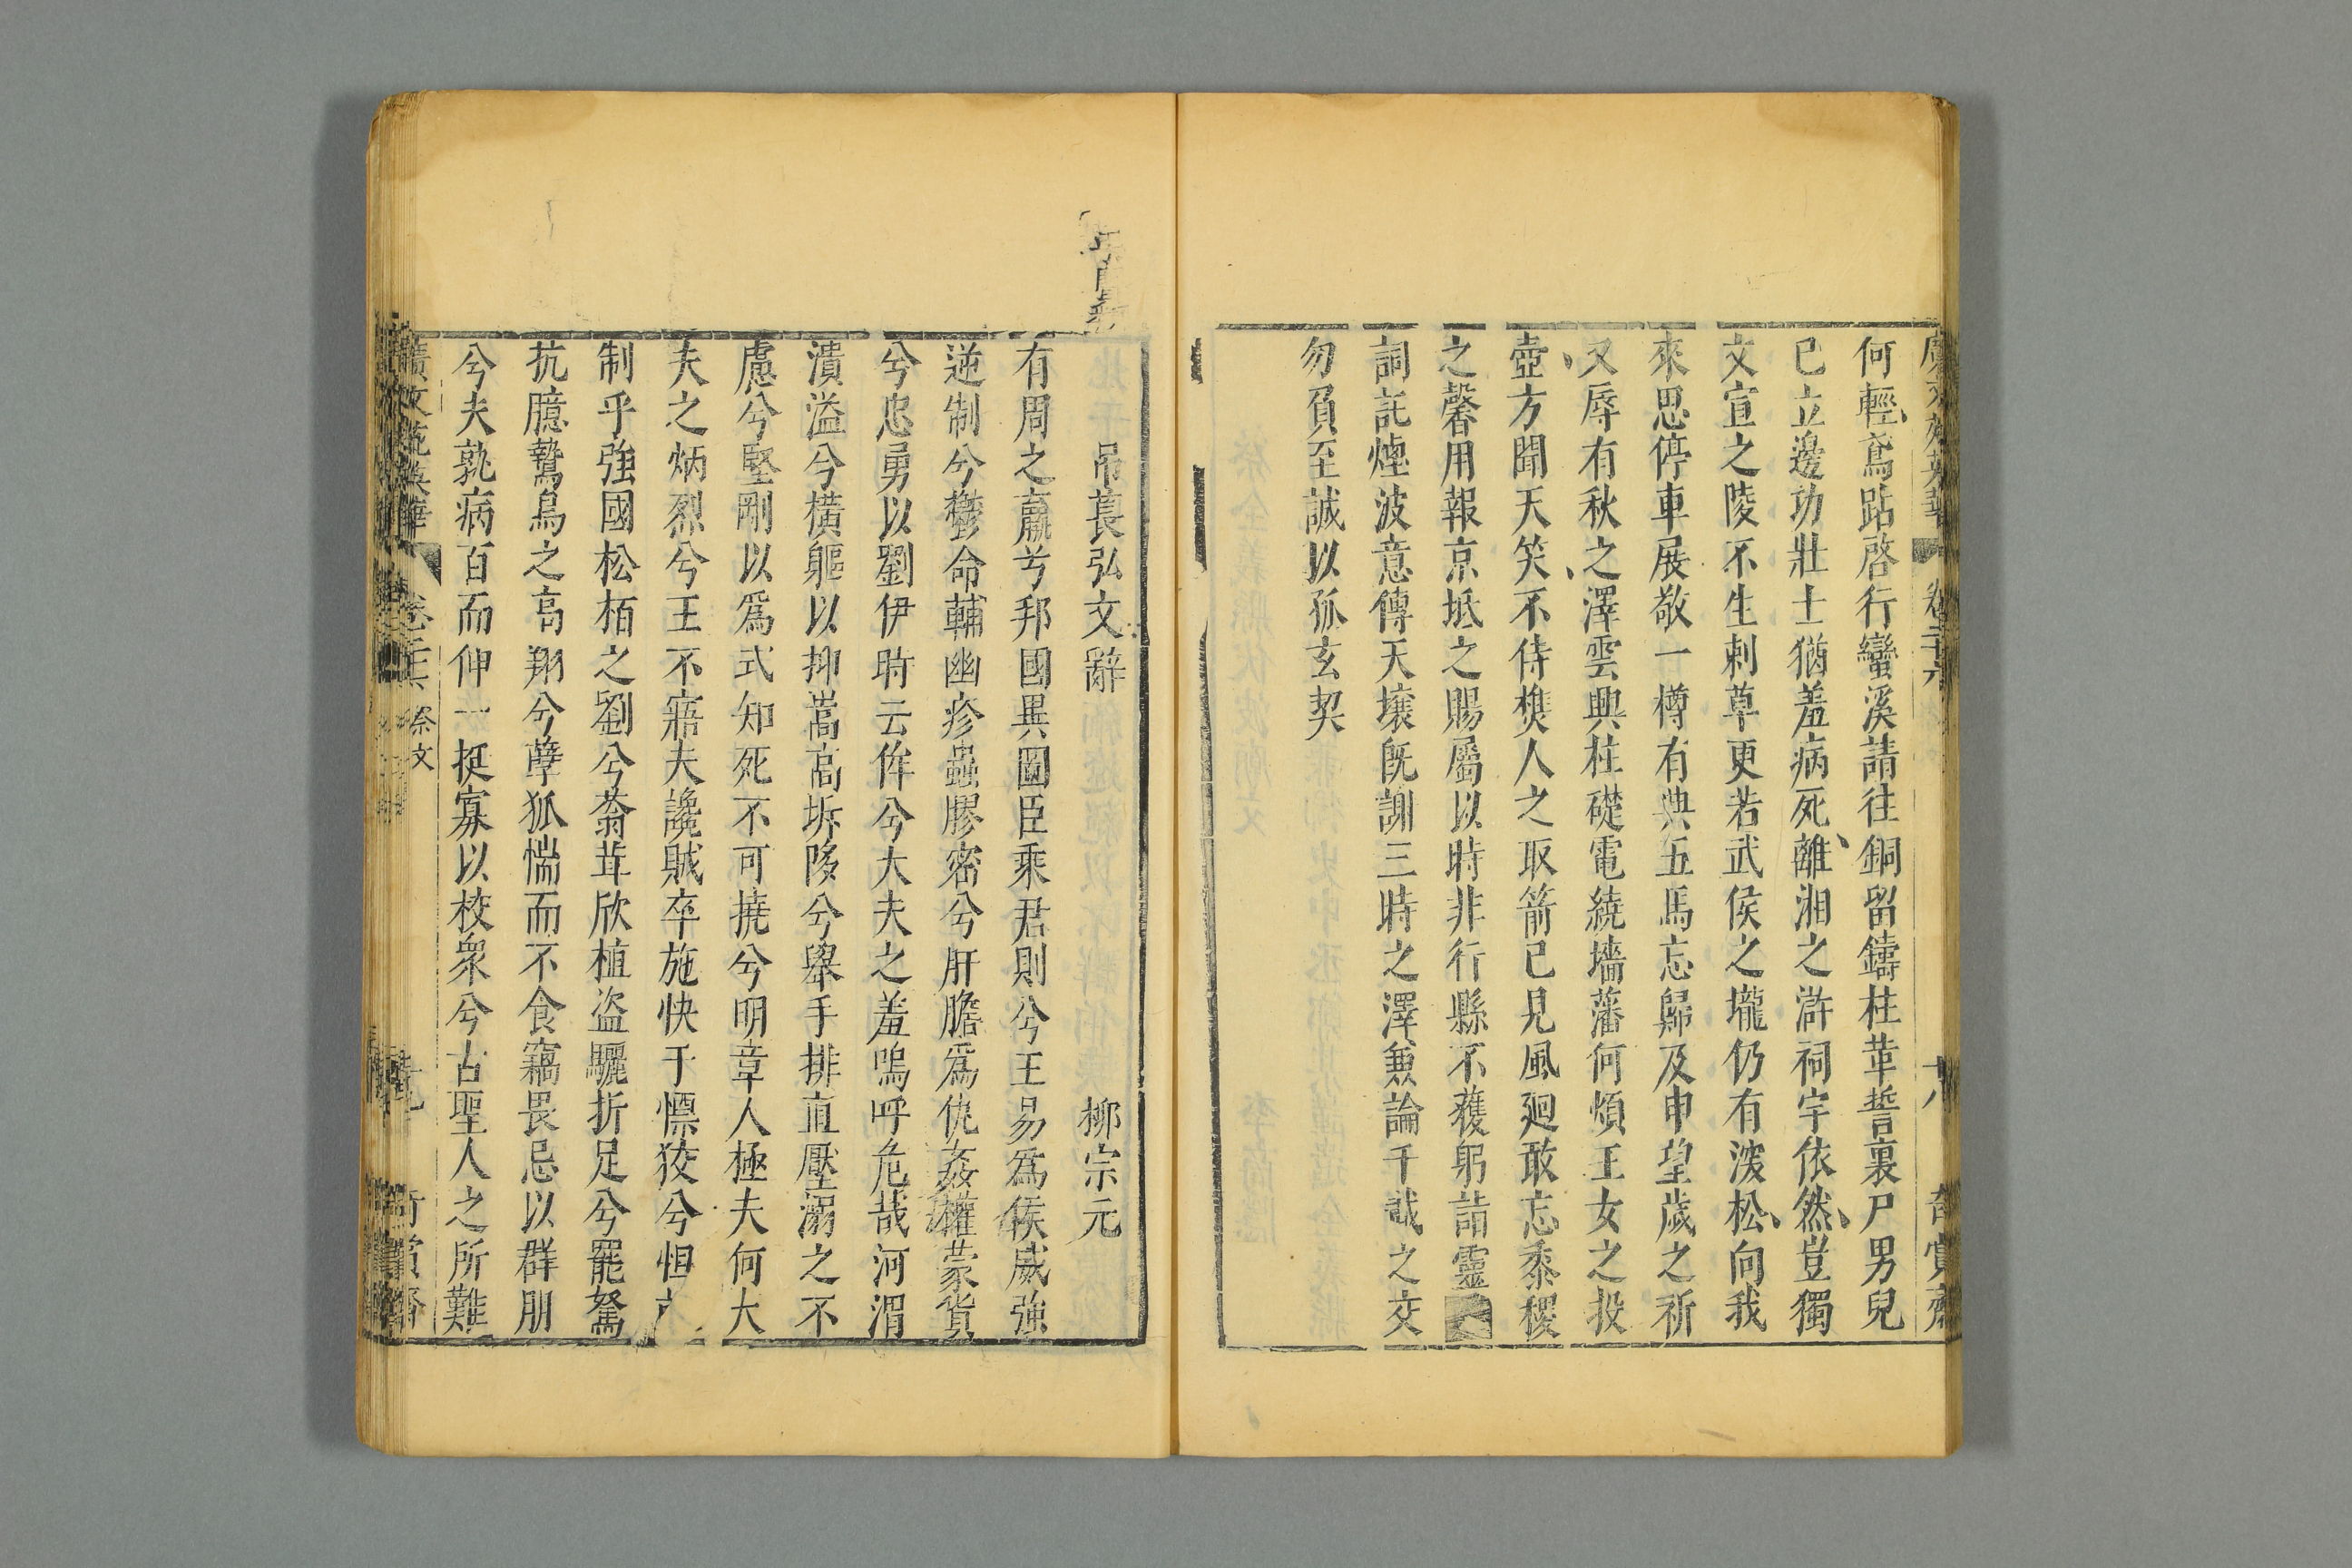 廣文苑英華 卷二十六 十八 奇賞齋
何輕鳶跕啓行蠻溪請往銅留鑄柱革誓裹尸男兒
已立邊功壯士猶羞病死離湘之滸祠宇依然豈獨
文宣之陵不生刺草更若武侯之壠仍有澓松向我
來思停車展敬一樽有典五馬忘歸及申望歲之祈
又辱有秋之澤雲興柱礎電繞墻藩何煩王女之投
壺方聞天笑不待樵人之取箭已見風廻敢忘黍稷
之馨用報京坻之賜屬以時非行縣不獲躬詣靈
詞託煙波意傳天壤旣謝三時之澤兼論千載之交
勿負至誠以孤玄契
吊萇弘文辭 柳宗元
有周之羸兮邦國異圖臣乘君則兮王易爲侯威強
逆制兮鬱命轉幽疹蠱膠密兮肝膽爲仇姦權蒙貨
兮忠勇以劉伊時云徂兮大夫之羞嗚呼危哉河渭
潰溢兮橫軀以抑嵩高坼陊兮舉手排直壓溺之不
慮兮堅剛以爲式知死不可撓兮明章人極夫何大
夫之炳烈兮王不寤夫讒賊卒施快于慓狡兮怛
制乎強國松栢之劉兮蓊茸欣植盜驪折足兮罷駑
抗臆鷙鳥之高翔兮孽狐惴而不食竊畏忌以群朋
兮夫孰病百而伸一挺寡以校衆兮古聖人之所難
續文苑英華 卷二十六 祭文 十九 奇賞齋